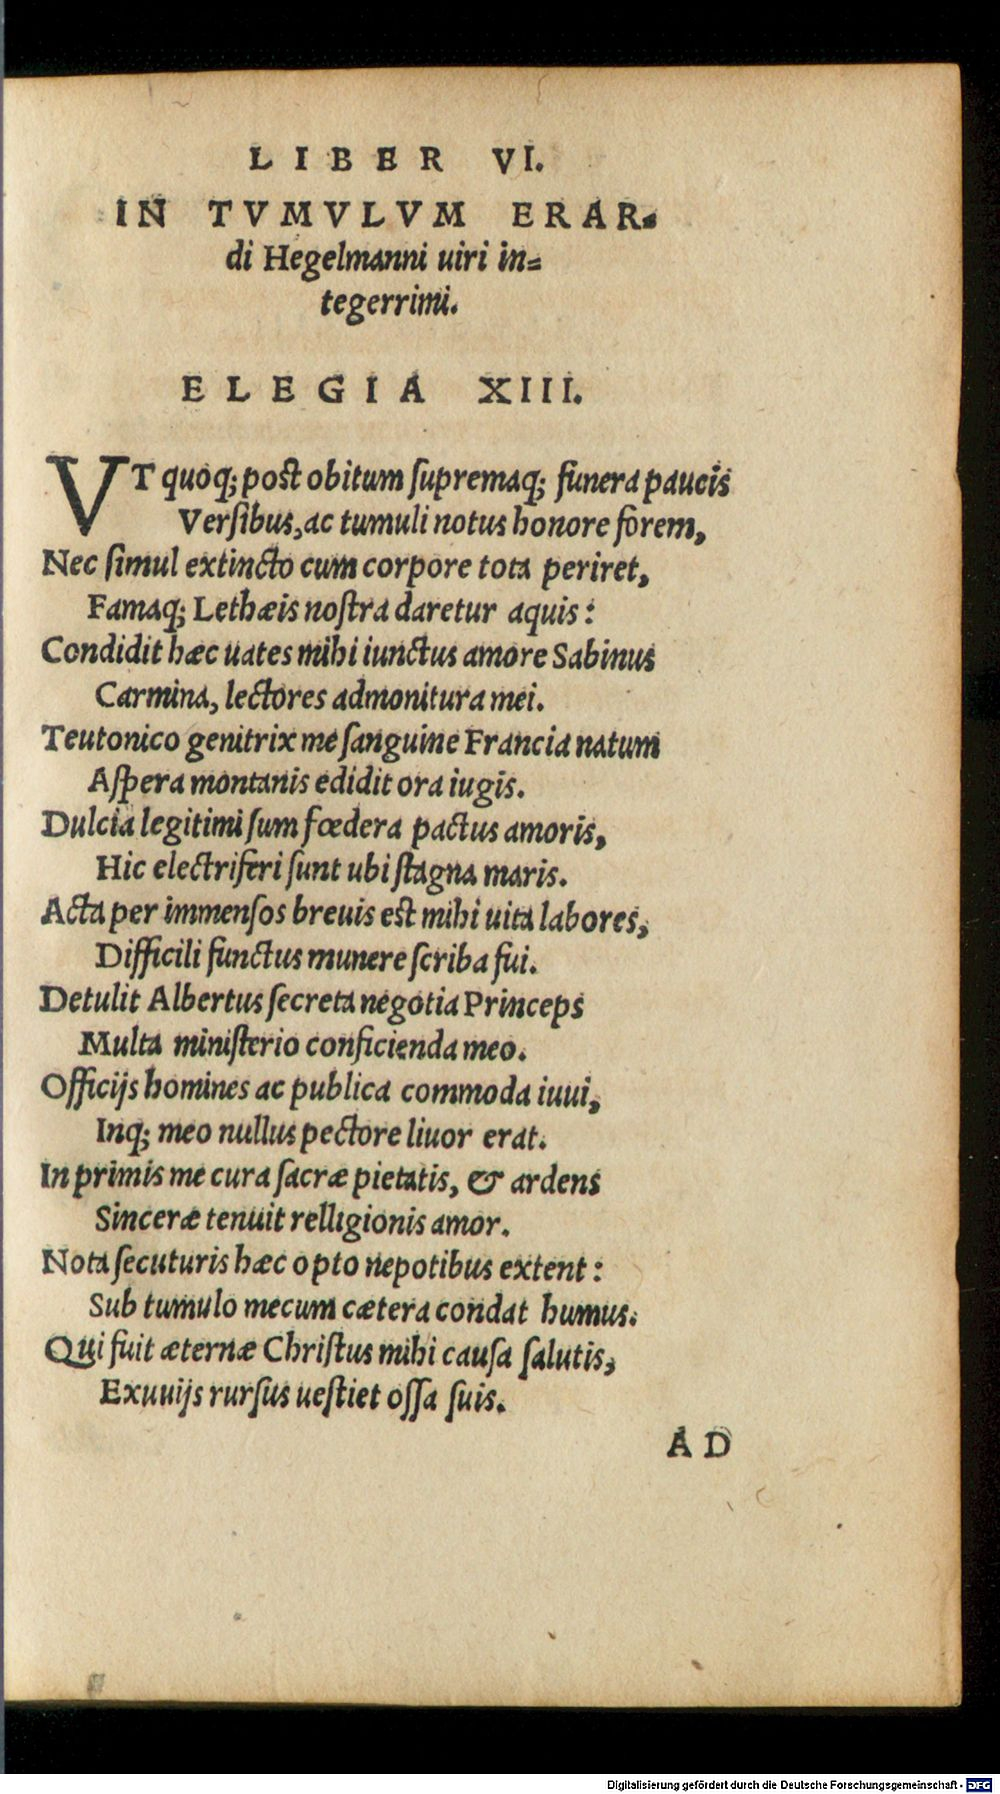 LIBER VI.
IN TVMVLVM ERAR-
di Hegelmanni uiri in-
tegerrimi.
ELEGIA XIII.
VT quoq; post obitum supremaq; funera paucis
Versibus, ac tumuli notus honore forem,
Nec simul extincto cum corpore tota periret,
Famaq; Lethæis nostra daretur aquis:
Condidit hæc uates mihi iunctus amore Sabinus
Carmina, lectores admonitura mei.
Teutonico genitrix me sanguine Francia natum
Aspera montanis edidit ora iugis.
Dulcia legitimi sum fœdera pactus amoris,
Hic electriferi sunt ubi stagna maris.
Acta per immensos breuis est mihi uita labores,
Difficili functus munere scriba fui.
Detulit Albertus secreta negotia Princeps
Multa ministerio conficienda meo.
Officijs homines ac publica commoda iuui,
Inq; meo nullus pectore liuor erat.
In primis me cura sacræ pietatis, & ardens
Sinceræ tenuit relligionis amor.
Nota secuturis hæc opto nepotibus extent:
Sub tumulo mecum cætera condat humus.
Qui fuit æternæ Christus mihi causa salutis,
Exuuijs rursus uestiet ossa suis.
AD
Digitalisierung gefördert durch die Deutsche Forschungsgemeinschaft - DFG